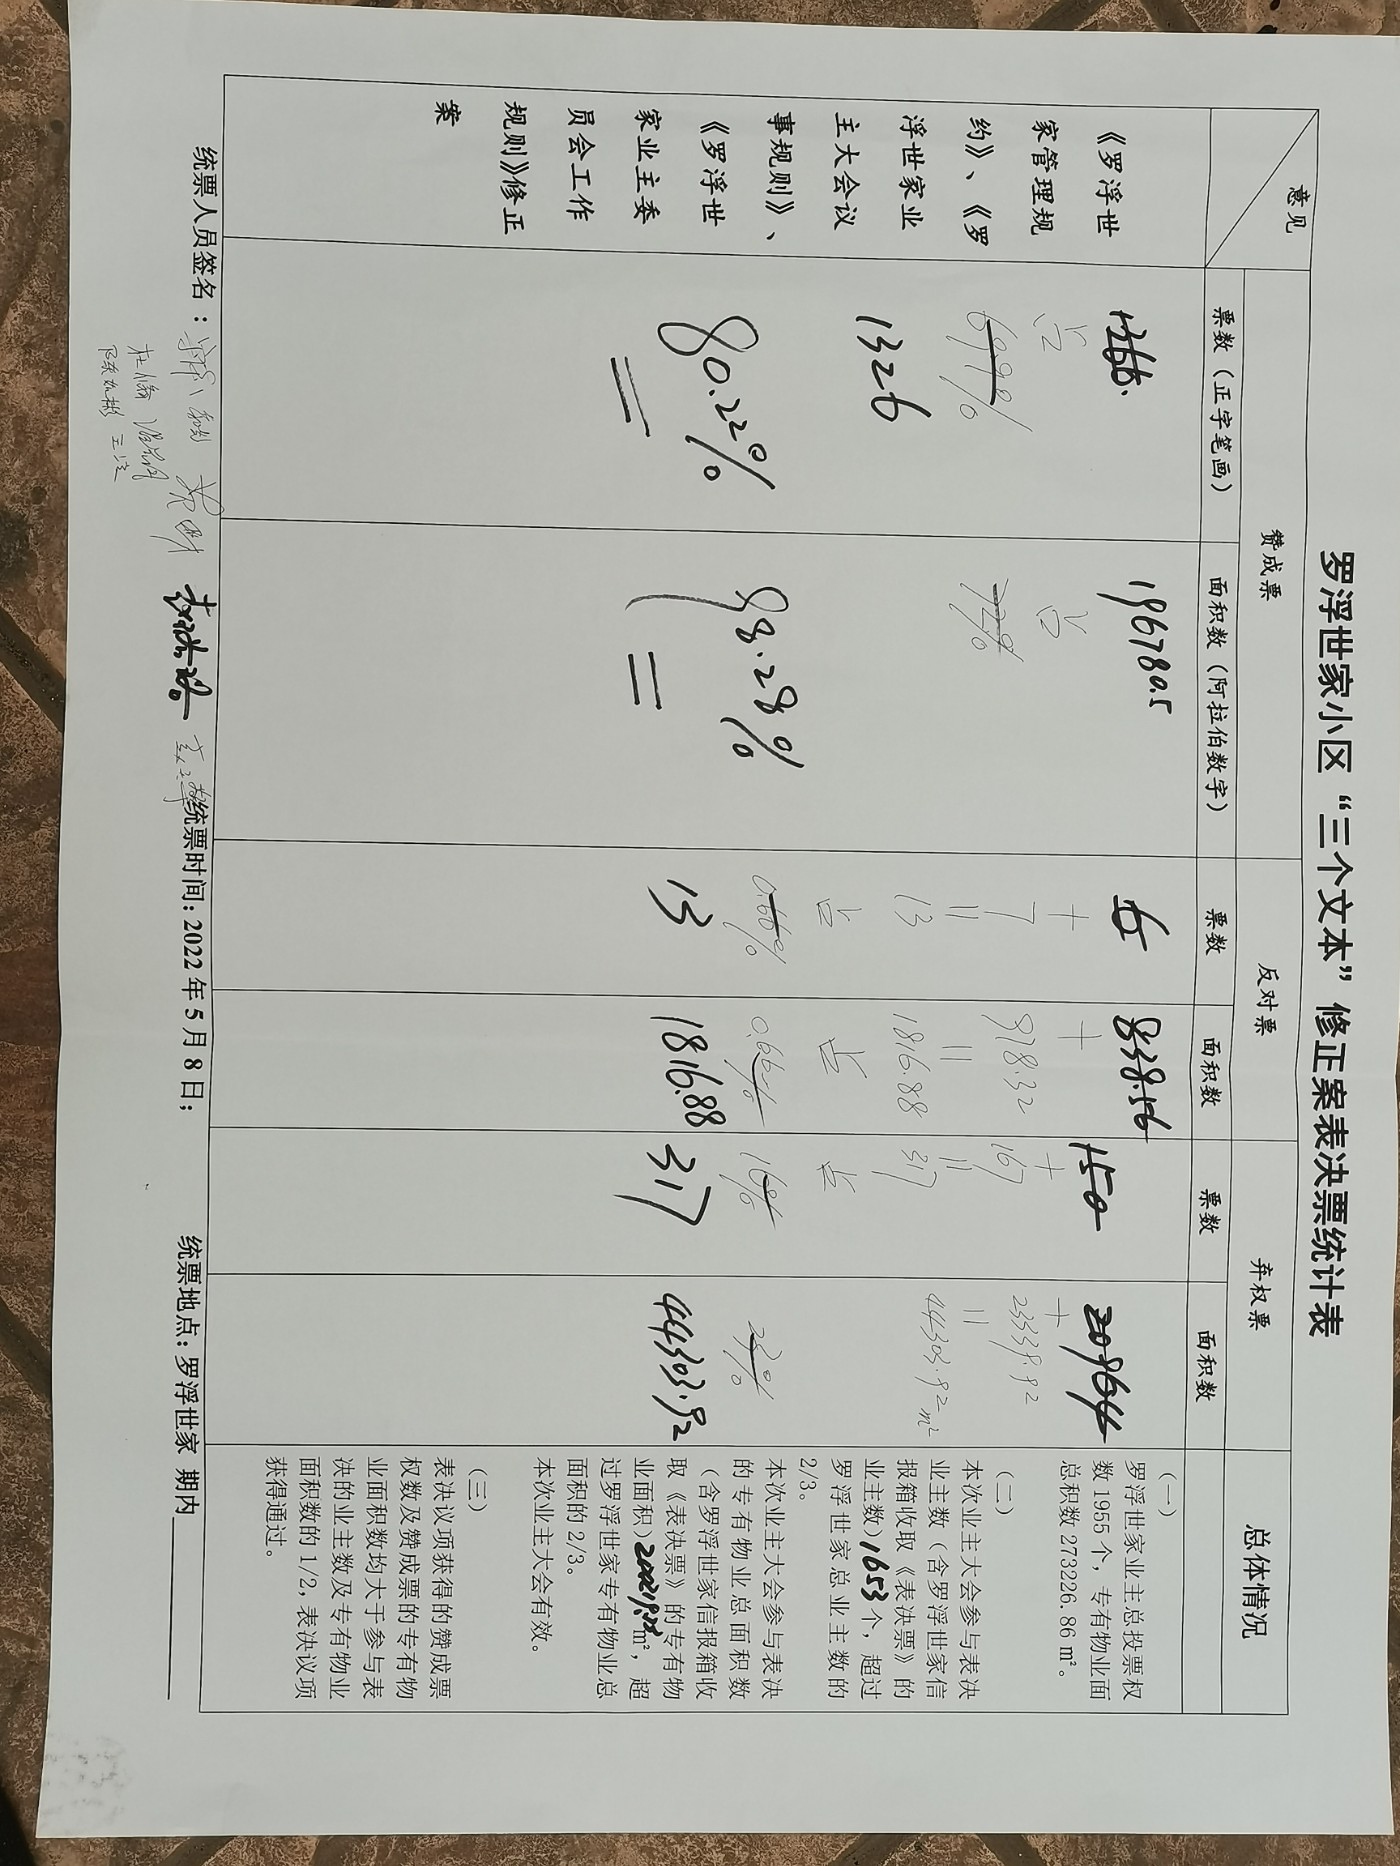 罗浮世家小区“三个文本”修正案表决票统计表
意见
赞成票
反对票
弃权票
总体情况
票数（正字笔画）
面积数（阿拉伯数字）
票数
面积数
票数
面积数
《罗浮世
家管理规
约》、《罗
浮世家业
主大会议
事规则》、
《罗浮世
家业主委
员会工作
规则》修正
案
占
69%
1326
80.22%
196780.5
占
72%
98.28%
+
7
=
13
占
0.66%
13
838.56
+
978.32
=
1816.88
占
0.66%
1816.88
150
+
167
=
317
占
16%
317
20964
+
23339.92
=
44303.92m²
44303.92
（一）
罗浮世家业主总投票权
数1955个，专有物业面
总积数273226.86㎡。
（二）
本次业主大会参与表决
业主数（含罗浮世家信
报箱收取《表决票》的
业主数）1653个，超过
罗浮世家总业主数的
2/3。
本次业主大会参与表决
的专有物业总面积数
（含罗浮世家信报箱收
取《表决票》的专有物
业面积）㎡，超
过罗浮世家专有物业总
面积的2/3。
本次业主大会有效。
（三）
表决议项获得的赞成票
权数及赞成票的专有物
业面积数均大于参与表
决的业主数及专有物业
面积数的1/2，表决议项
获得通过。
统票人员签名：
统票时间：2022年5月8日；
统票地点：罗浮世家 期内